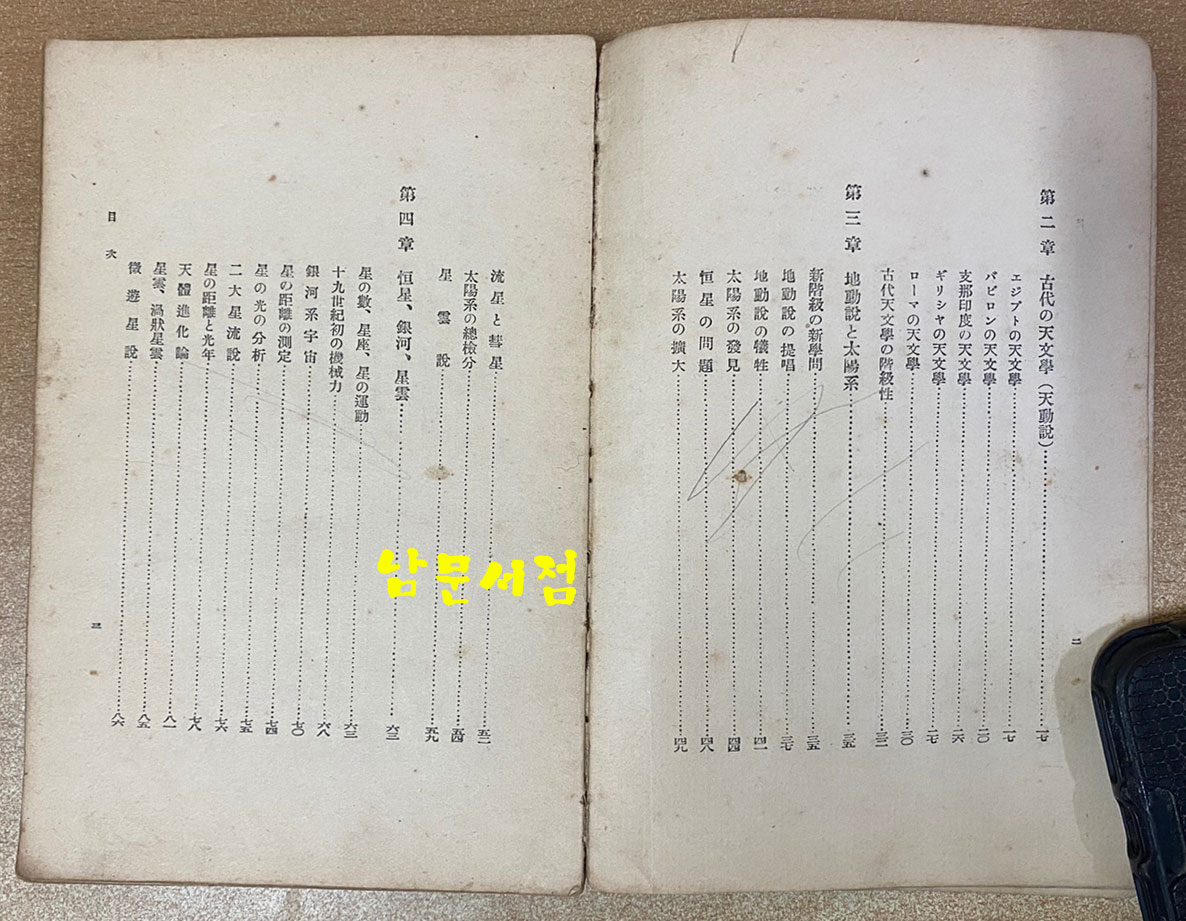 二
第二章 古代の天文學（天動說）…………一七
エジプトの天文學…………一七
バビロンの天文學…………二〇
支那印度の天文學…………二六
ギリシヤの天文學…………二七
ローマの天文學…………三〇
古代天文學の階級性…………三二
第三章 地動說と太陽系…………三五
新階級の新學問…………三五
地動說の提唱…………三七
地動說の犠牲…………四一
太陽系の發見…………四四
恒星の問題…………四八
太陽系の擴大…………四九
流星と彗星…………五二
太陽系の總檢分…………五四
星雲說…………五九
第四章 恒星、銀河、星雲…………六三
星の數、星座、星の運動…………六三
十九世紀初の機械力…………六八
銀河系宇宙…………七〇
星の距離の測定…………七四
星の光の分析…………七五
二大星流說…………七六
星の距離と光年…………七八
天體進化論…………八一
星雲、渦狀星雲…………八五
微遊星說…………八六
目次
三
남문서점